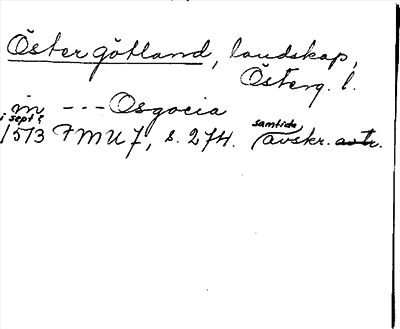 Östergötland, landskap,
Österg. l.
in --- Osgocia
i sept?
1513 FMU 7, s. 274. samtida avskr.